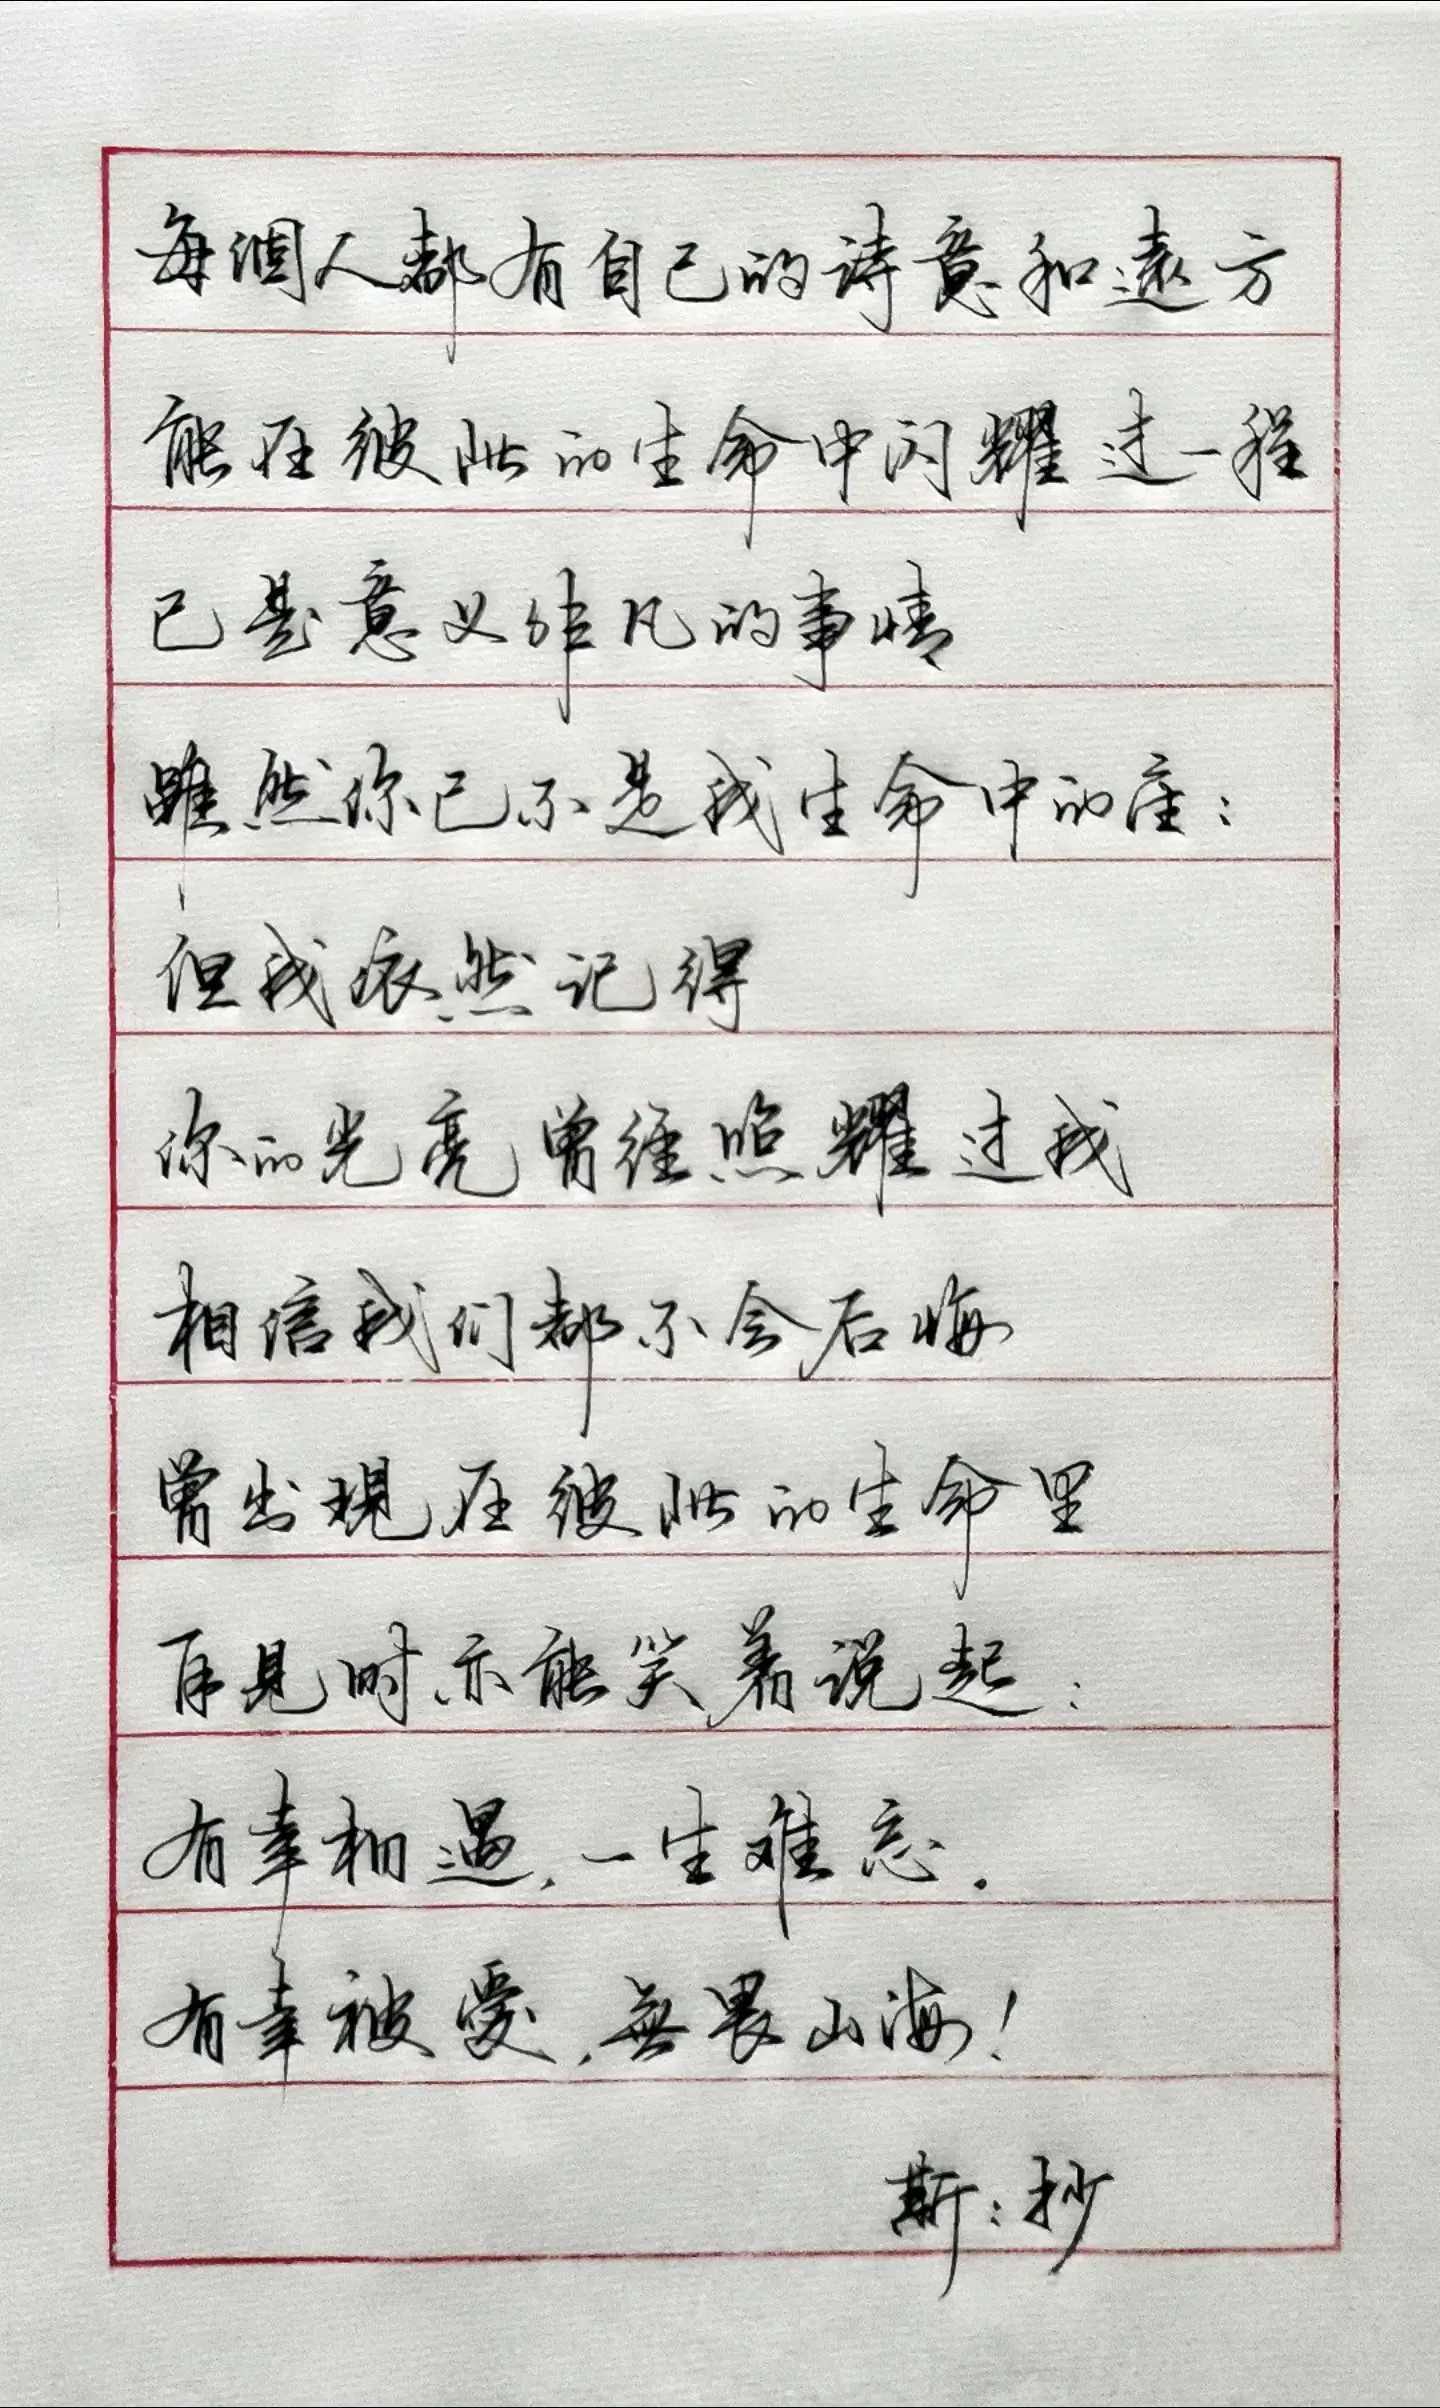 每個人都有自己的诗意和遠方
能在彼此的生命中闪耀过一程
已是意义非凡的事情
雖然你已不是我生命中的座:
但我依然记得
你的光亮曾经照耀过我
相信我们都不会后悔
曾出現在彼此的生命里
再見时亦能笑着说起:
有幸相遇,一生难忘.
有幸被愛,無畏山海!
斯:抄